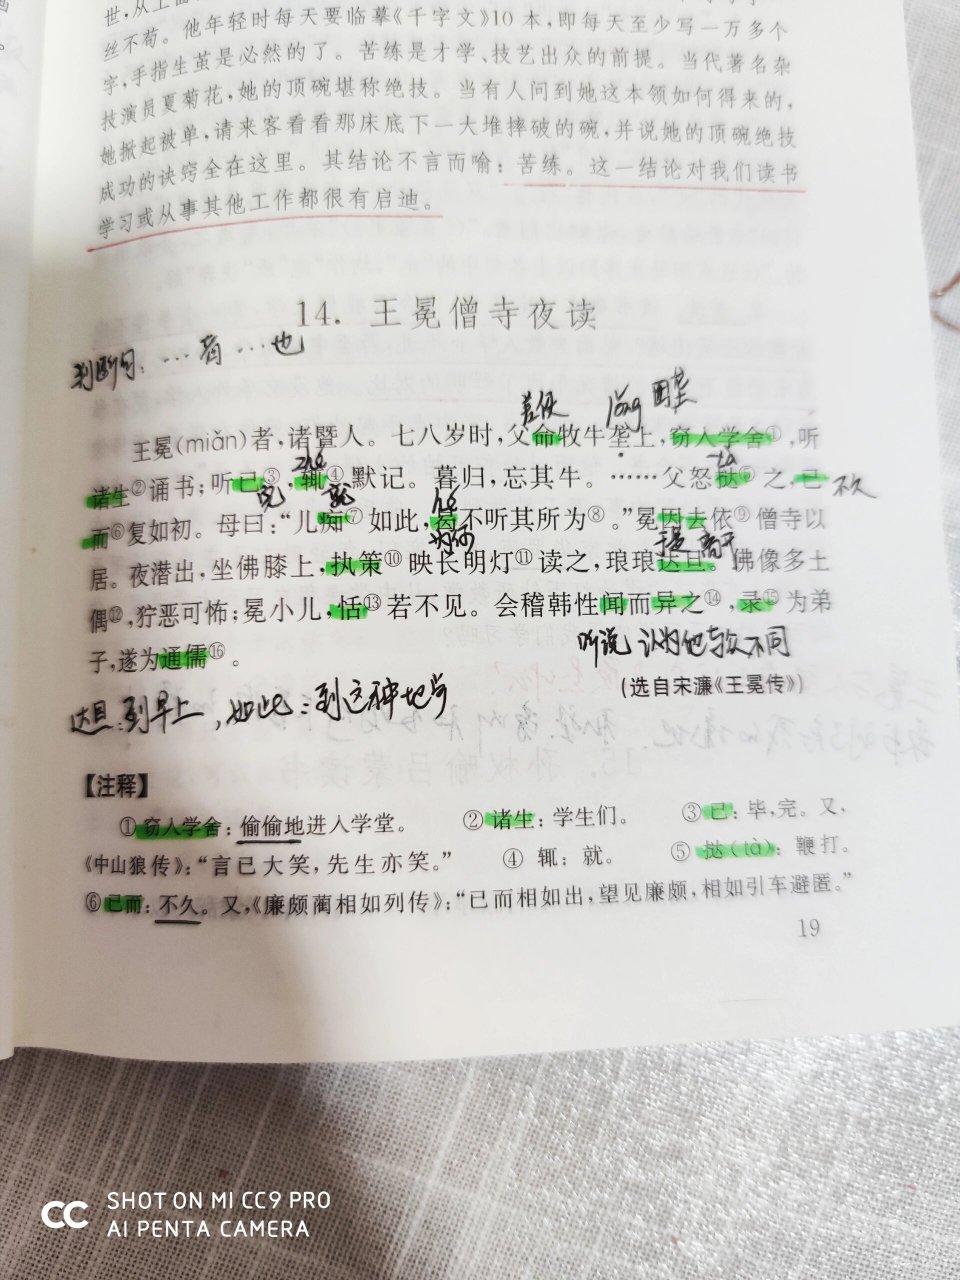 丝不苟。他年轻时每天要临摹《千字文》10本,即每天至少写一万多个
字,手指生茧是必然的了。苦练是才学、技艺出众的前提。当代著名杂
技演员夏菊花,她的顶碗堪称绝技。当有人问到她这本领如何得来的,
她掀起被单,请来客看看那床底下一大堆摔破的碗,并说她的顶碗绝技
成功的诀窍全在这里。其结论不言而喻:苦练。这一结论对我们读书
学习或从事其他工作都很有启迪。
14. 王冕僧寺夜读
判断句:…者…也
差使 lǒng 田埂
王冕(miǎn)者,诸暨人。七八岁时,父命牧牛垄上,窃入学舍①,听
zhé tà
诸生②诵书;听已③,辄④默记。暮归,忘其牛。……父怒挞⑤之,已
完 就 hé 不久
而⑥复如初。母曰:“儿痴⑦如此,曷不听其所为⑧。”冕因去依⑨僧寺以
为何
居。夜潜出,坐佛膝上,执策⑩映长明灯⑪读之,琅琅达旦。佛像多土
偶⑫,狞恶可怖;冕小儿,恬⑬若不见。会稽韩性闻而异之⑭,录⑮为弟
听说 认为他与众不同
子,遂为通儒⑯。
(选自宋濂《王冕传》)
达旦:到早上,如此:到这种地步
【注释】
①窃入学舍:偷偷地进入学堂。 ②诸生:学生们。 ③已:毕,完。又,
《中山狼传》:“言已大笑,先生亦笑。” ④辄:就。 ⑤挞(tà):鞭打。
⑥已而:不久。又,《廉颇蔺相如列传》:“已而相如出,望见廉颇,相如引车避匿。”
19
SHOT ON MI CC9 PRO
AI PENTA CAMERA